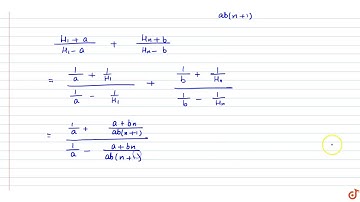 ab(n+1)
(H₁ + a)/(H₁ - a) + (Hn + b)/(Hn - b)
= (1/a + 1/H₁)/(1/a - 1/H₁) + (1/b + 1/Hn)/(1/b - 1/Hn)
= (1/a + (a + bn)/(ab(n+1)))/(1/a - (a + bn)/(ab(n+1)))